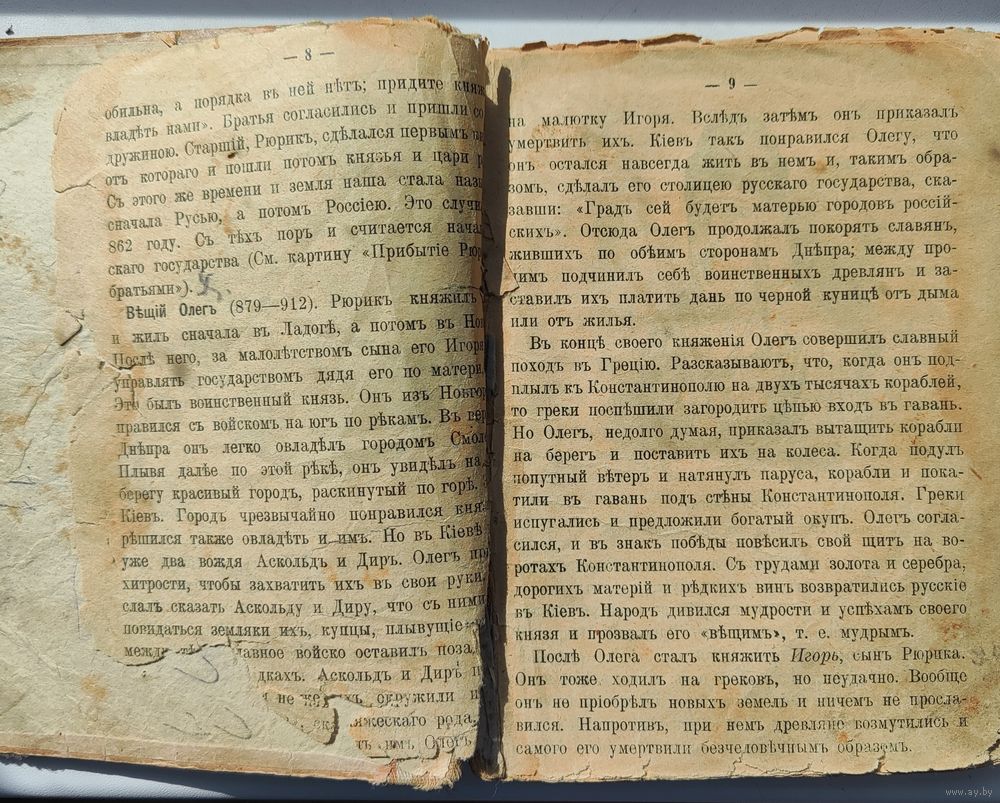 — 8 —
обильна, а порядка въ ней нѣтъ; придите
владѣть нами». Братья согласились и пришли
дружиною. Старшій, Рюрикъ, сдѣлался первымъ
отъ котораго и пошли потомъ князья и цари
Съ этого же времени и земля наша стала
сначала Русью, а потомъ Россіею. Это
862 году. Съ тѣхъ поръ и считается
скаго государства (См. картину «Прибытіе
братьями»).
Вѣщій Олегъ (879—912). Рюрикъ княжилъ
и жилъ сначала въ Ладогѣ, а потомъ въ
Послѣ него, за малолѣтствомъ сына его Игоря
управлять государствомъ дядя его по матери
Это былъ воинственный князь. Онъ изъ
правился съ войскомъ на югъ по рѣкамъ. Въ
Днѣпра онъ легко овладѣлъ городомъ
Плывя далѣе по этой рѣкѣ, онъ увидѣлъ на
берегу красивый городъ, раскинутый по горѣ.
Кіевъ. Городъ чрезвычайно понравился
рѣшился также овладѣть и имъ. Но въ Кіевѣ
уже два вождя Аскольдъ и Диръ. Олегъ
хитрости, чтобы захватить ихъ въ свои руки.
слалъ сказать Аскольду и Диру, что съ ними
повидаться земляки ихъ, купцы, плывущіе
главное войско оставилъ
Аскольдъ и Диръ
окружили и
княжескаго рода,
имъ Олегъ
— 9 —
на малютку Игоря. Вслѣдъ затѣмъ онъ приказалъ
умертвить ихъ. Кіевъ такъ понравился Олегу, что
онъ остался навсегда жить въ немъ и, такимъ обра-
зомъ, сдѣлалъ его столицею русскаго государства, ска-
завши: «Градъ сей будетъ матерью городовъ россій-
скихъ». Отсюда Олегъ продолжалъ покорять славянъ,
жившихъ по обѣимъ сторонамъ Днѣпра; между про-
чимъ подчинилъ себѣ воинственныхъ древлянъ и за-
ставилъ ихъ платить дань по черной куницѣ отъ дыма
или отъ жилья.
Въ концѣ своего княженія Олегъ совершилъ славный
походъ въ Грецію. Разсказываютъ, что, когда онъ под-
плылъ къ Константинополю на двухъ тысячахъ кораблей,
то греки поспѣшили загородить цѣпью входъ въ гавань.
Но Олегъ, недолго думая, приказалъ вытащить корабли
на берегъ и поставить ихъ на колеса. Когда подулъ
попутный вѣтеръ и натянулъ паруса, корабли и пока-
тили въ гавань подъ стѣны Константинополя. Греки
испугались и предложили богатый окупъ. Олегъ согла-
сился, и въ знакъ побѣды повѣсилъ свой щитъ на во-
ротахъ Константинополя. Съ грудами золота и серебра,
дорогихъ матерій и рѣдкихъ винъ возвратились русскіе
въ Кіевъ. Народъ дивился мудрости и успѣхамъ своего
князя и прозвалъ его «вѣщимъ», т. е. мудрымъ.
Послѣ Олега сталъ княжить Игорь, сынъ Рюрика.
Онъ тоже ходилъ на грековъ, но неудачно. Вообще
онъ не пріобрѣлъ новыхъ земель и ничемъ не просла-
вился. Напротивъ, при немъ древляне возмутились и
самого его умертвили безчеловѣчнымъ образомъ.
www.ay.by